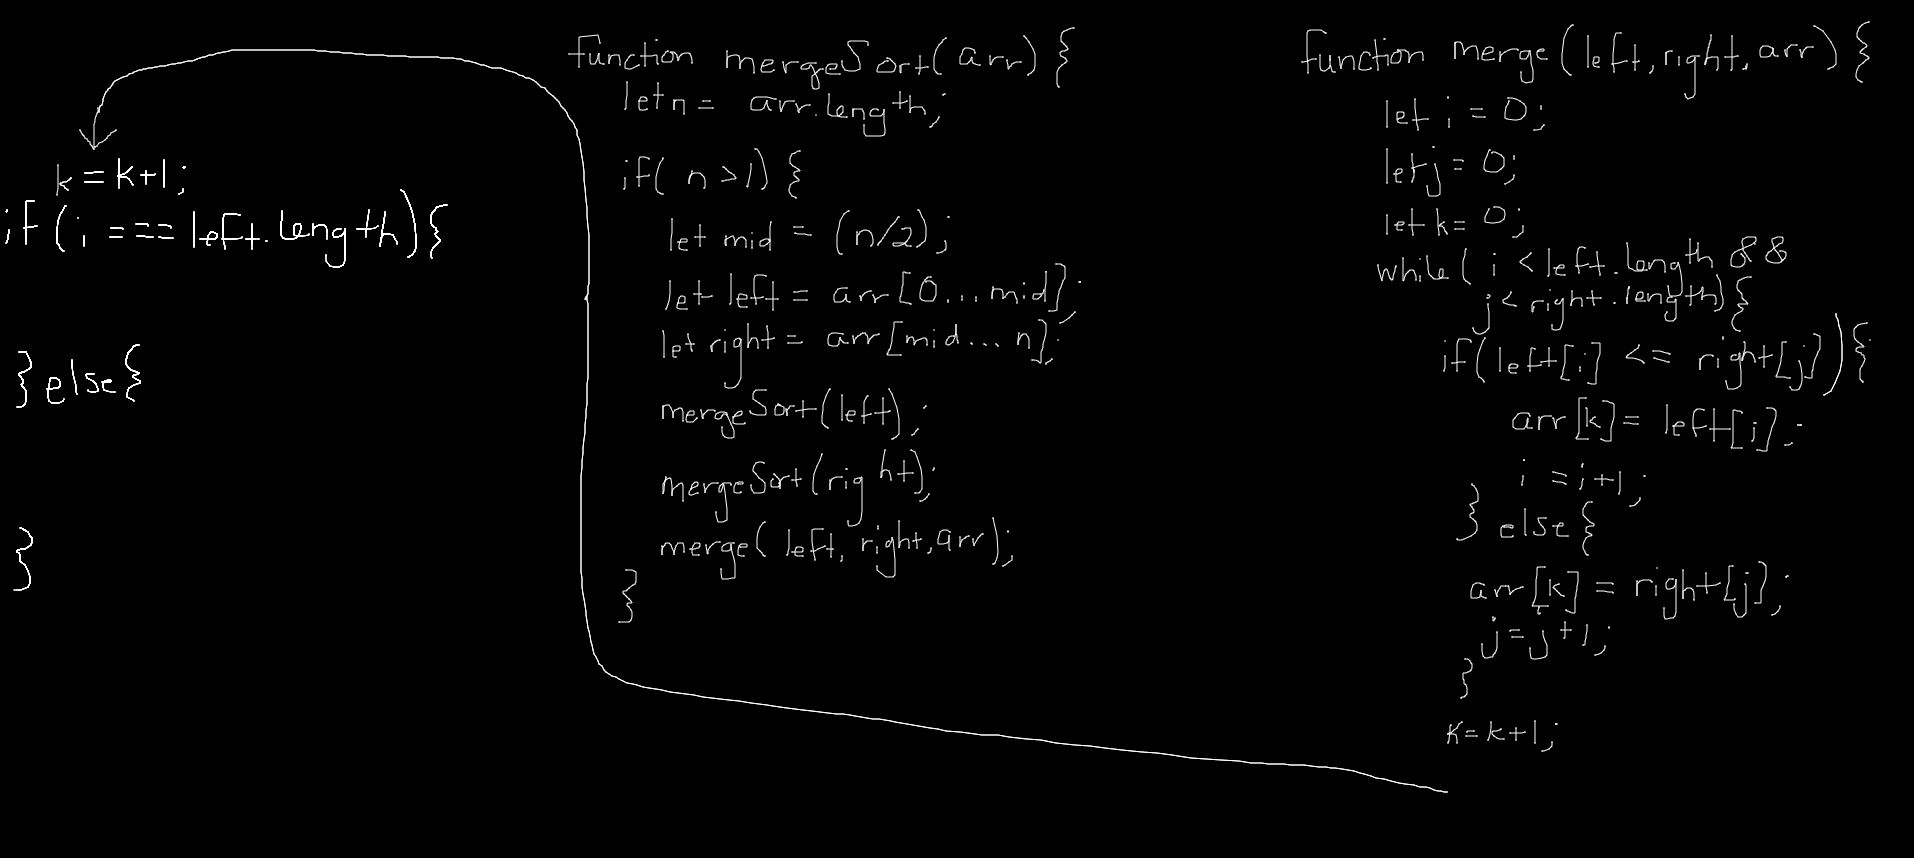 function mergeSort(arr) {
let n = arr.length;
if( n >1) {
let mid = (n/2);
let left = arr[0...mid];
let right = arr[mid... n];
mergeSort(left);
mergeSort(right);
merge( left, right, arr);
}
function merge(left, right, arr) {
let i = 0;
let j = 0;
let k = 0;
while( i < left.length &&
j < right.length) {
if(left[i] <= right[j]) {
arr[k] = left[i];
i = i+1;
} else {
arr[k] = right[j];
j = j+1;
}
k = k+1;
k = k+1;
if (i === left.length) {
} else {
}